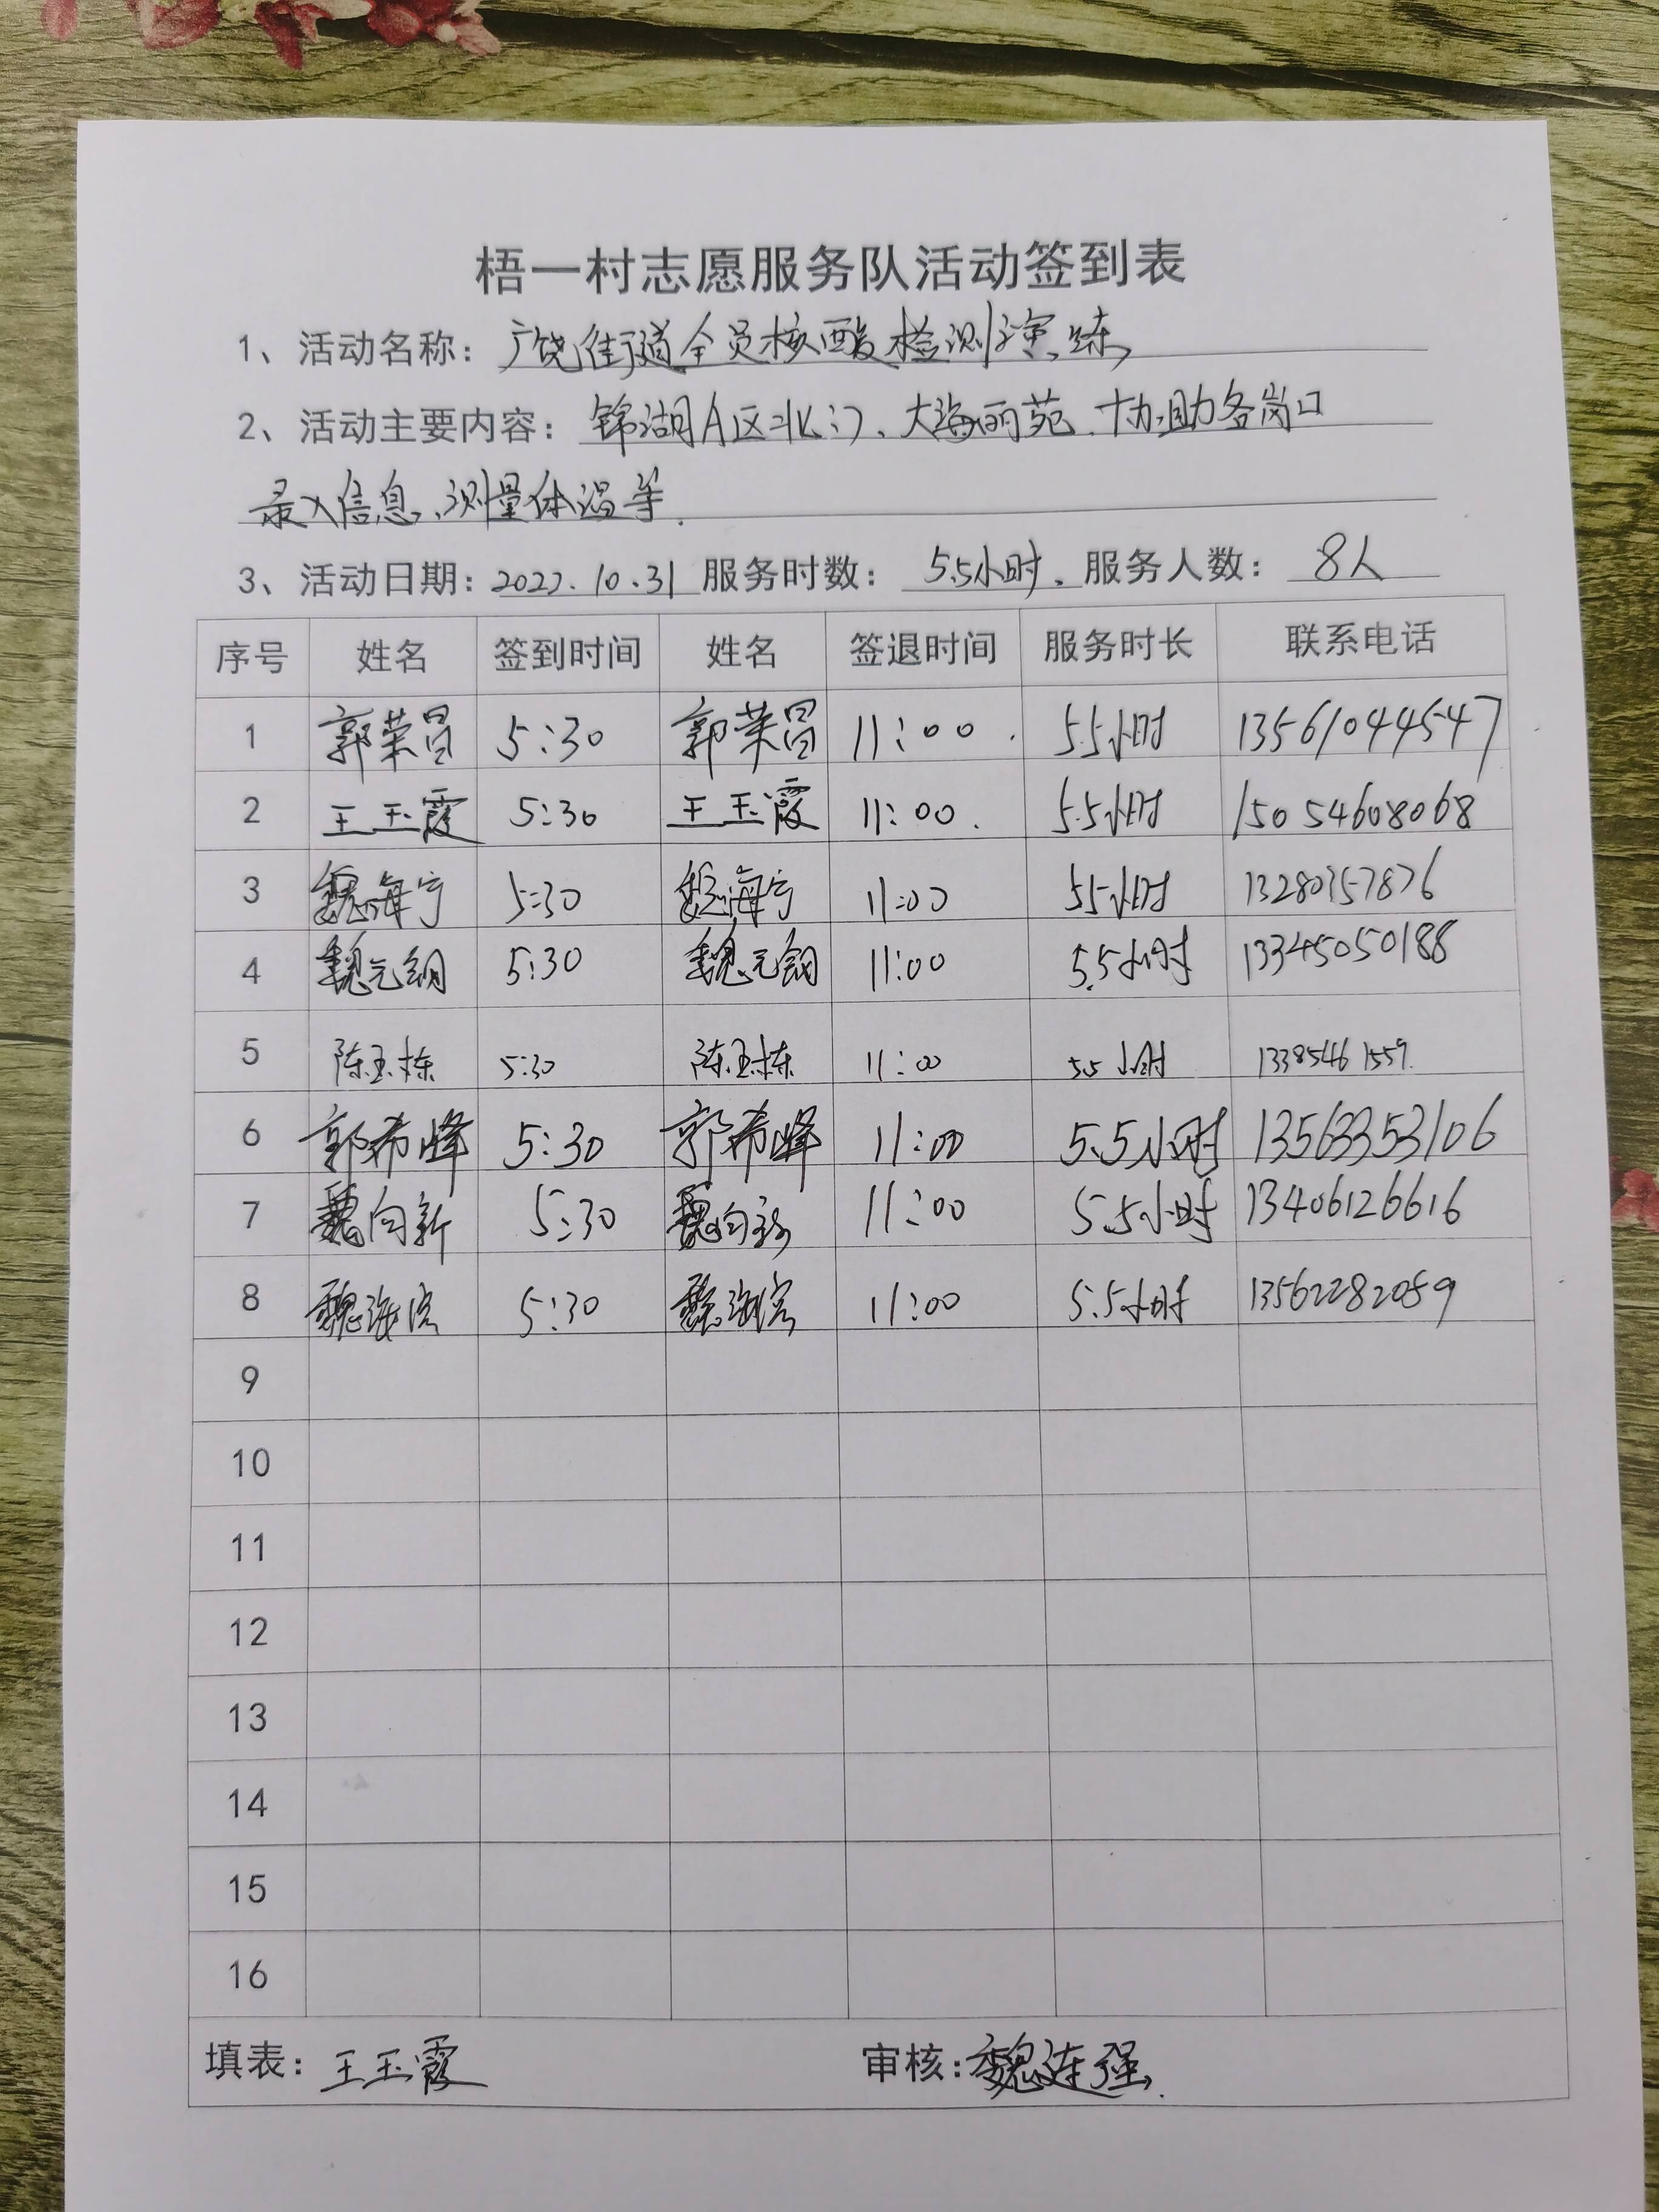 梧一村志愿服务队活动签到表
1、活动名称：广饶街道全员核酸检测演练
2、活动主要内容：锦湖A区北门、大海丽苑、协助各岗口
录入信息、测量体温等.
3、活动日期：2022.10.31 服务时数：5.5小时. 服务人数：8人
序号 姓名 签到时间 姓名 签退时间 服务时长 联系电话
1 郭荣昌 5:30 郭荣昌 11:00. 5.5小时 13561044547
2 王玉霞 5:30 王玉霞 11:00. 5.5小时 15054608068
3 魏海宁 5:30 魏海宁 11:00 5.5小时 13280357876
4 魏元钢 5:30 魏元钢 11:00 5.5小时 13345050188
5 陈玉栋 5:30 陈玉栋 11:00 5.5小时 13385461559.
6 郭希峰 5:30 郭希峰 11:00 5.5小时 13563353106
7 魏向新 5:30 魏向新 11:00 5.5小时 13406126616
8 魏海 5:30 魏海 11:00 5.5小时 13562282089
9
10
11
12
13
14
15
16
填表：王玉霞 审核：魏连强.